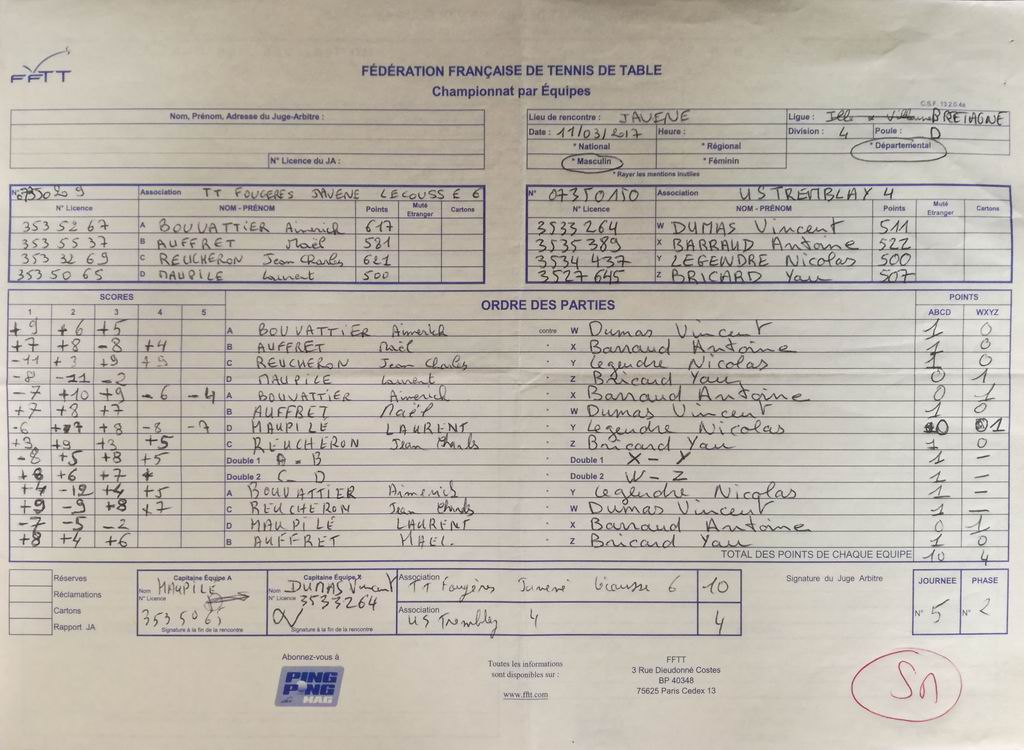 FFTT
FÉDÉRATION FRANÇAISE DE TENNIS DE TABLE
Championnat par Équipes
C.S.F. 13.2.0.4a
Nom, Prénom, Adresse du Juge-Arbitre :
N° Licence du JA :
Lieu de rencontre : JAVENE Ligue : BRETAGNE
Date : 11/03/2017 Heure : Division : 4 Poule : D
* National * Régional * Départemental
* Masculin * Féminin
* Rayer les mentions inutiles
N° Association TT FOUGERES JAVENE LECOUSSE 6
N° Licence NOM - PRÉNOM Points Muté Etranger Cartons
353 52 67 A BOUVATTIER Aimerick 617
353 55 37 B AUFFRET Maël 581
353 32 69 C REUCHERON Jean Charles 621
353 50 65 D MAUPILE Laurent 500
N° 07350150 Association US TREMBLAY 4
N° Licence NOM - PRÉNOM Points Muté Etranger Cartons
3533 264 W DUMAS Vincent 511
3535 389 X BARRAUD Antoine 522
3534 437 Y LEGENDRE Nicolas 500
3527 645 Z BRICARD Yau 507
SCORES ORDRE DES PARTIES POINTS
1 2 3 4 5 ABCD WXYZ
+9 +6 +5 A BOUVATTIER Aimerick contre W Dumas Vincent 1 0
+7 +8 -8 +4 B AUFFRET Maël X Barraud Antoine 1 0
-11 +3 +9 +9 C REUCHERON Jean Charles Y Legendre Nicolas 1 0
-8 -11 -2 D MAUPILE Laurent Z Bricard Yau 0 1
-7 +10 +9 -6 -4 A BOUVATTIER Aimerick X Barraud Antoine 0 1
+7 +8 +7 B AUFFRET Maël W Dumas Vincent 1 0
-6 +7 +8 -8 -7 D MAUPILE LAURENT Y Legendre Nicolas 0 1
+3 +9 +3 C REUCHERON Jean Charles Z Bricard Yau 1 0
-8 +5 +8 +5 Double 1 A - B Double 1 X - Y 1 -
+8 +6 +7 Double 2 C - D Double 2 W - Z 1 -
+4 -12 +4 +5 A BOUVATTIER Aimerick Y Legendre Nicolas 1 -
+9 -9 +8 +7 C REUCHERON Jean Charles W Dumas Vincent 1 -
-7 -5 -2 D MAUPILE LAURENT X Barraud Antoine 0 1
+8 +4 +6 B AUFFRET MAEL. Z Bricard Yau 1 0
TOTAL DES POINTS DE CHAQUE EQUIPE 10 4
Réserves
Réclamations
Cartons
Rapport JA
Capitaine Équipe A
Nom MAUPILE
N° Licence
353 5065
Signature à la fin de la rencontre
Capitaine Équipe X
Nom DUMAS Vincent
N° Licence 3533264
Signature à la fin de la rencontre
Association TT Fougères Javené Lécousse 6 10
Association US Tremblay 4 4
Signature du Juge Arbitre
JOURNEE PHASE
N° 5 N° 2
Abonnez-vous à
PING PONG MAG
Toutes les informations
sont disponibles sur :
www.fftt.com
FFTT
3 Rue Dieudonné Costes
BP 40348
75625 Paris Cedex 13